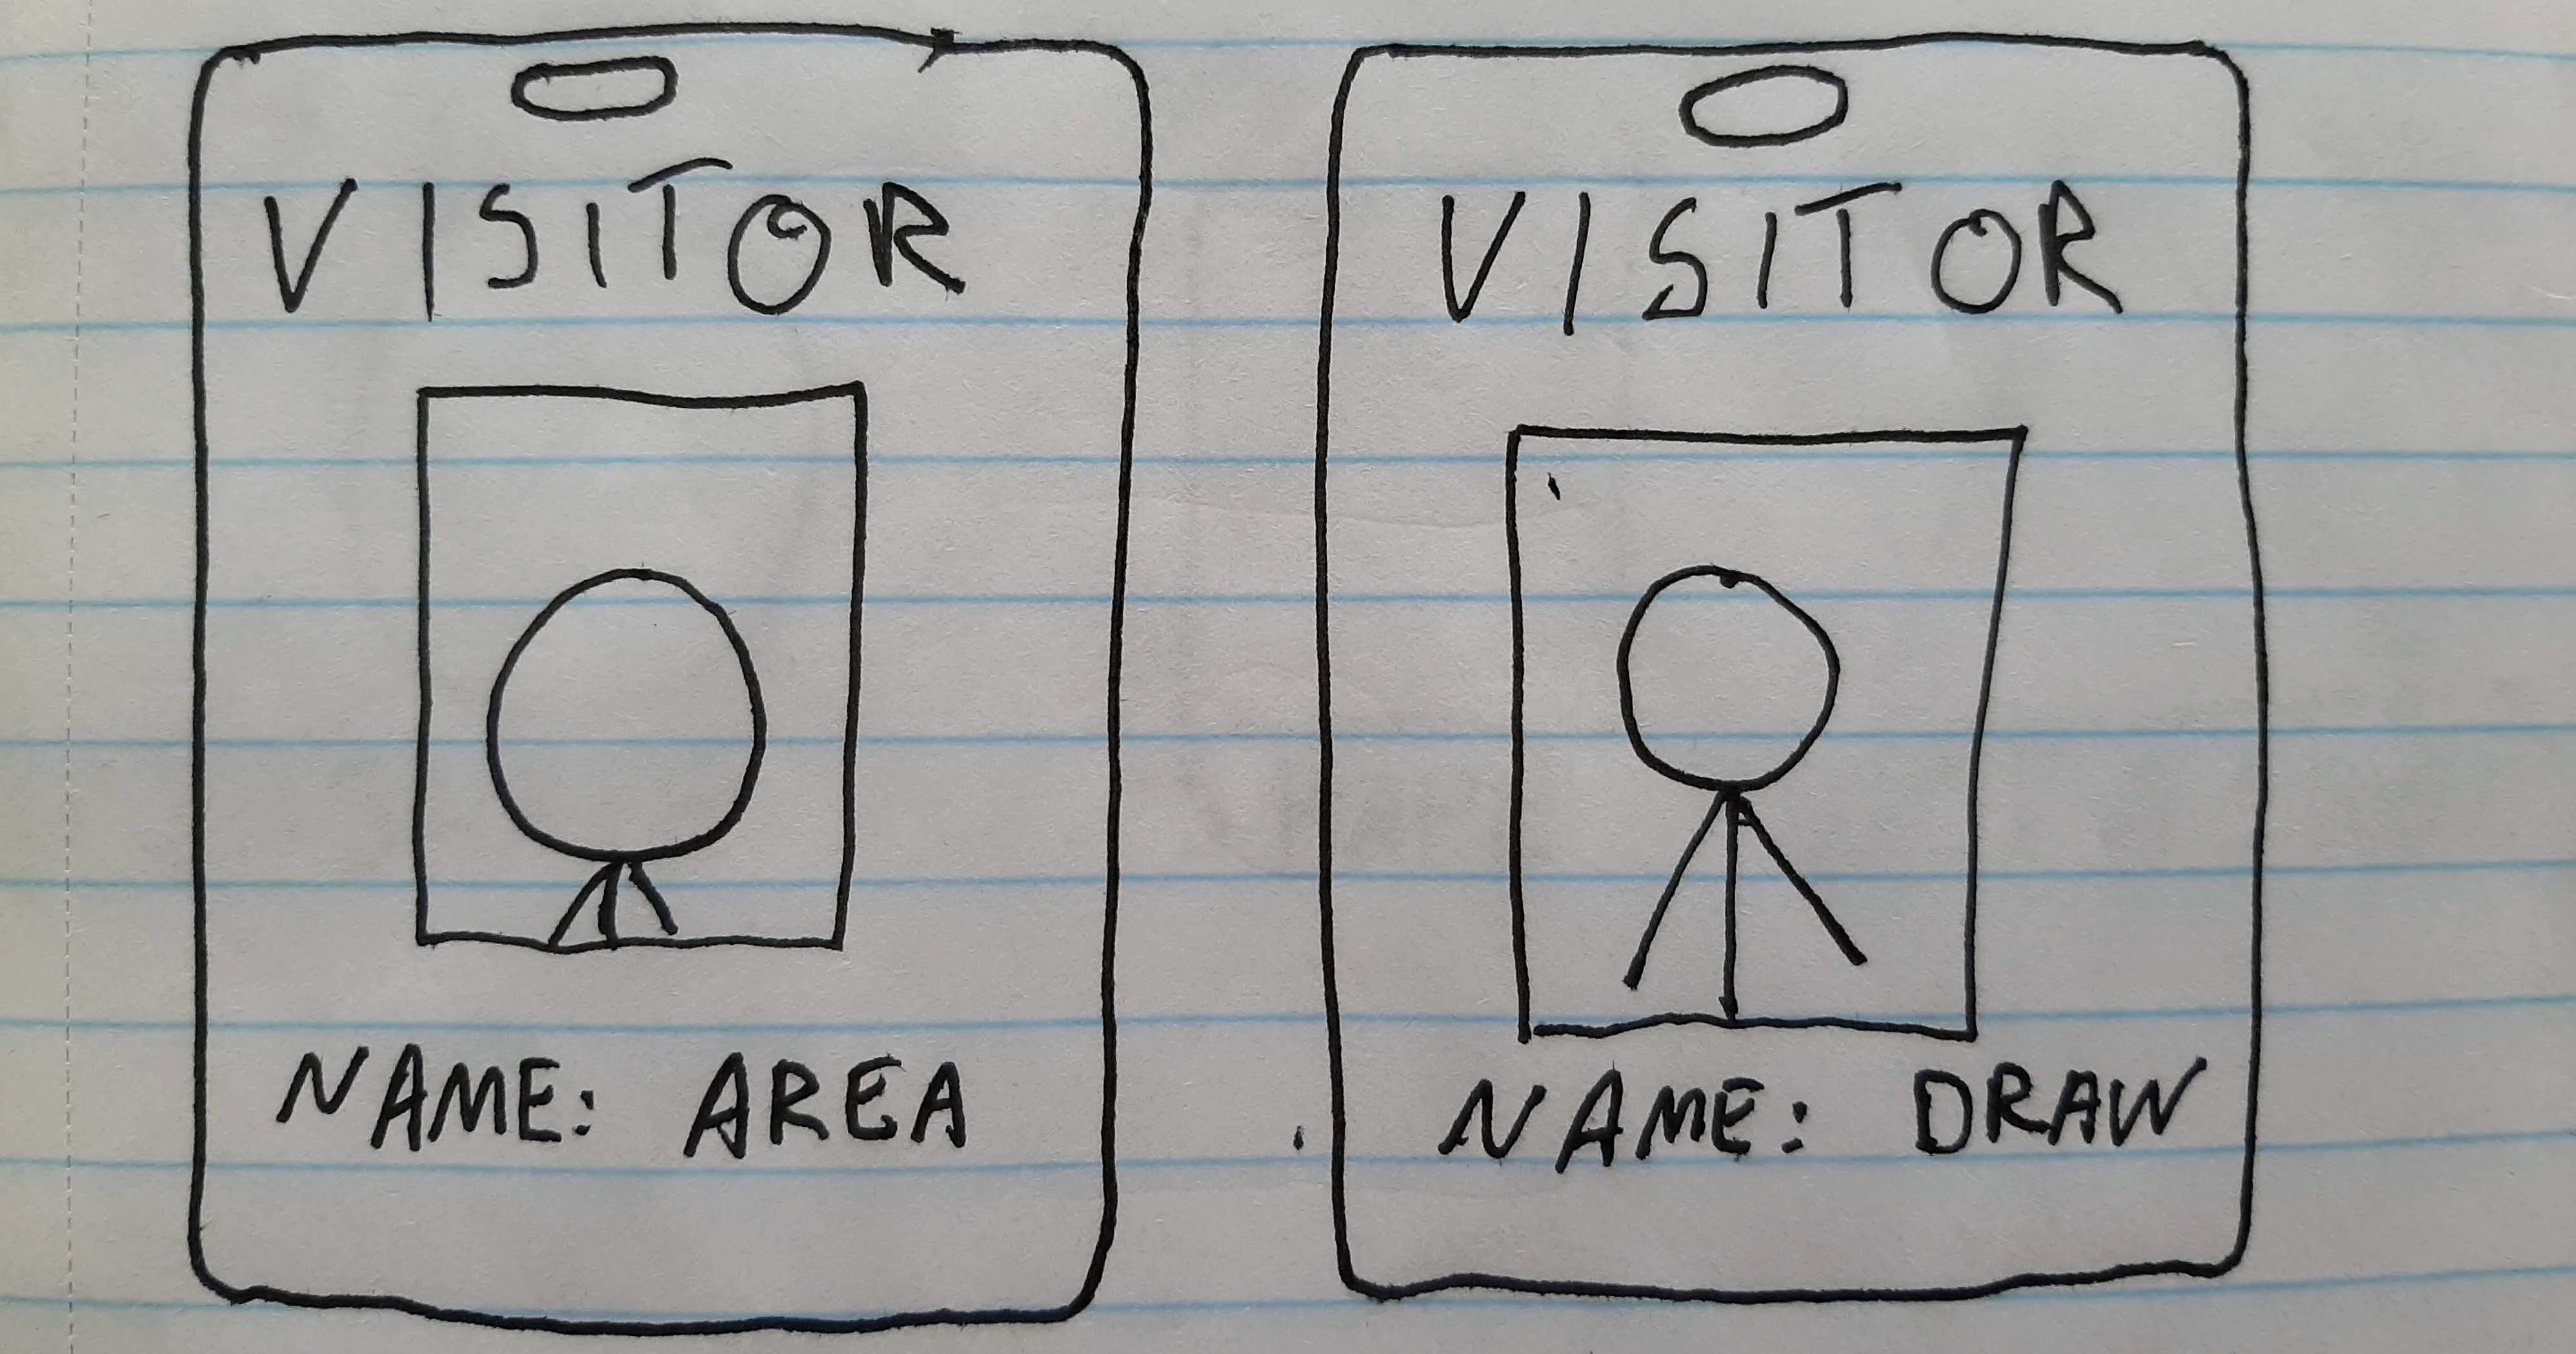 VISITOR
NAME: AREA
VISITOR
NAME: DRAW